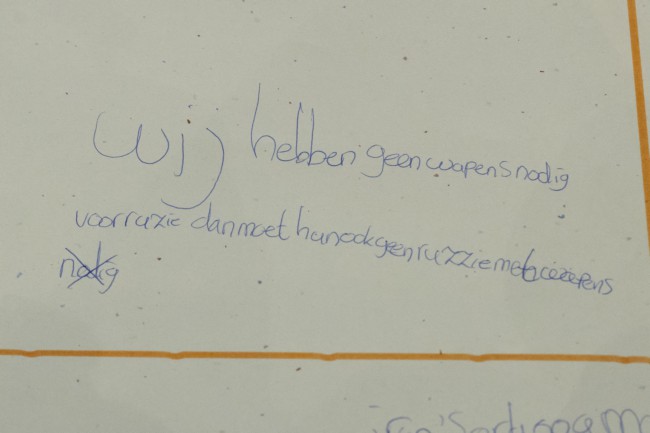 wij hebben geen wapens nodig
voor ruzie dan moet hun ook geen ruzzie met wapens
nodig